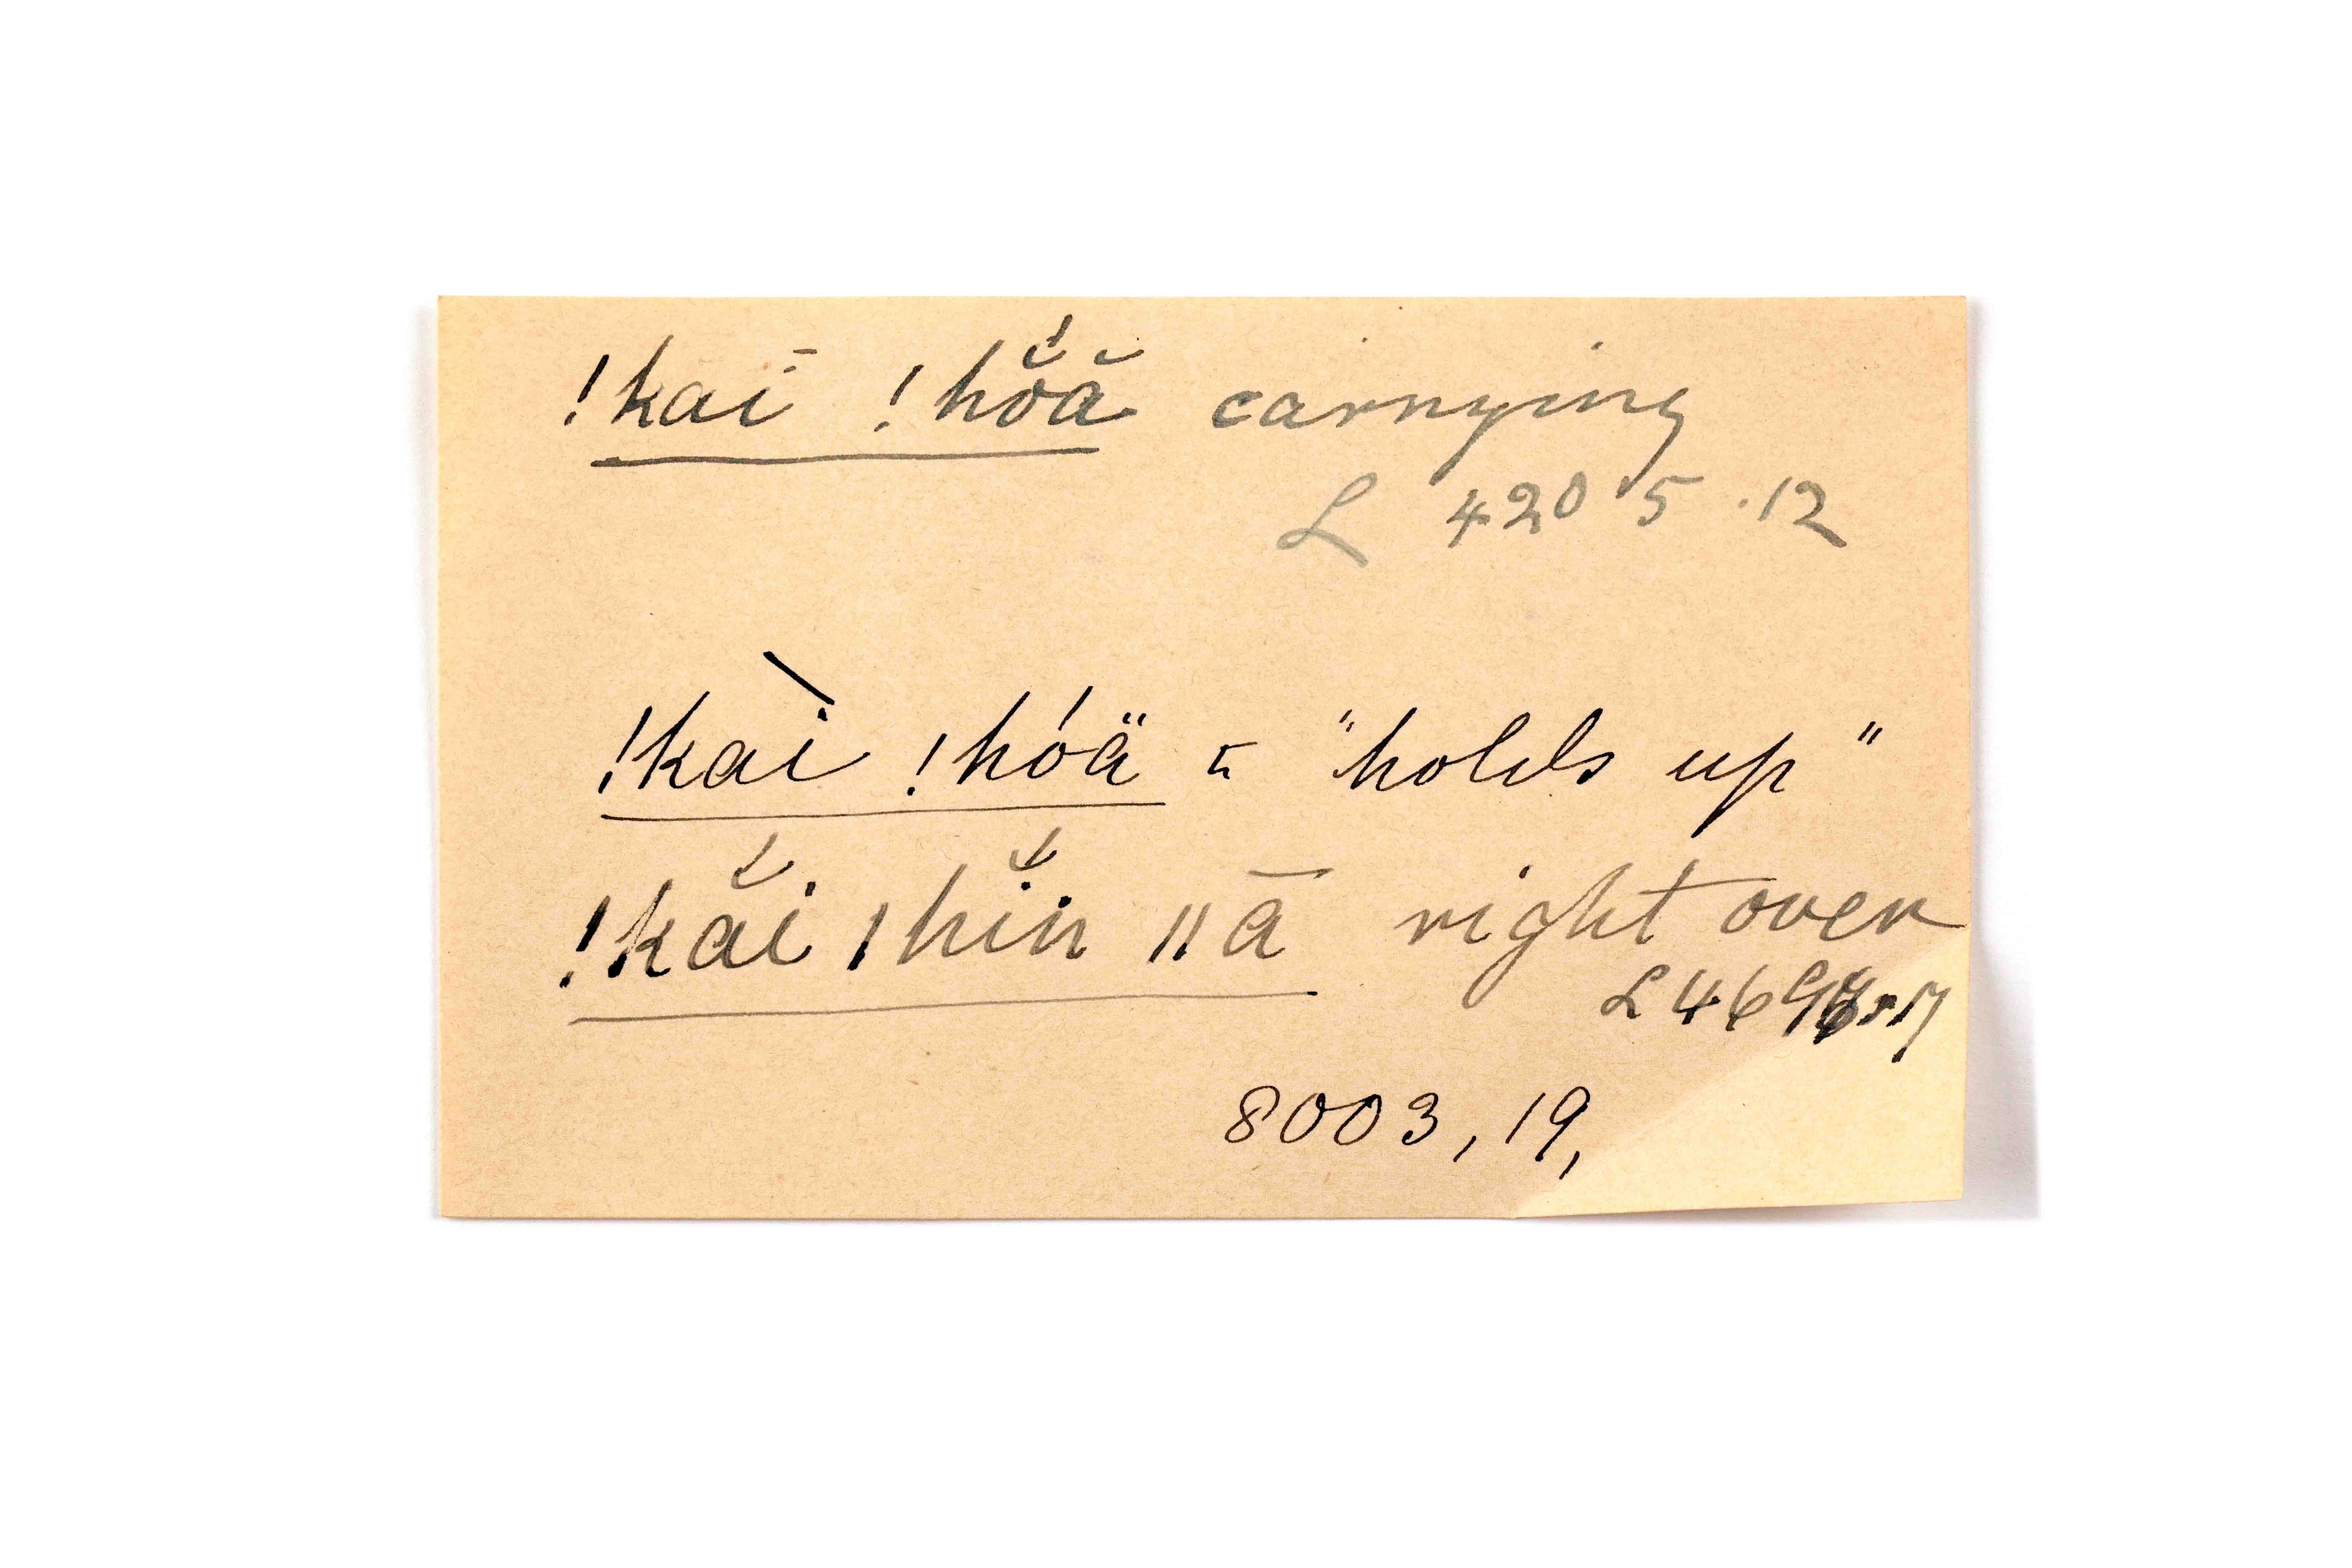 !kaī !hŏ́ă carrying
L 4205.12
!kaì !hóä = "holds up"
!kăí |hĭń ||ā right over
8003, 19,